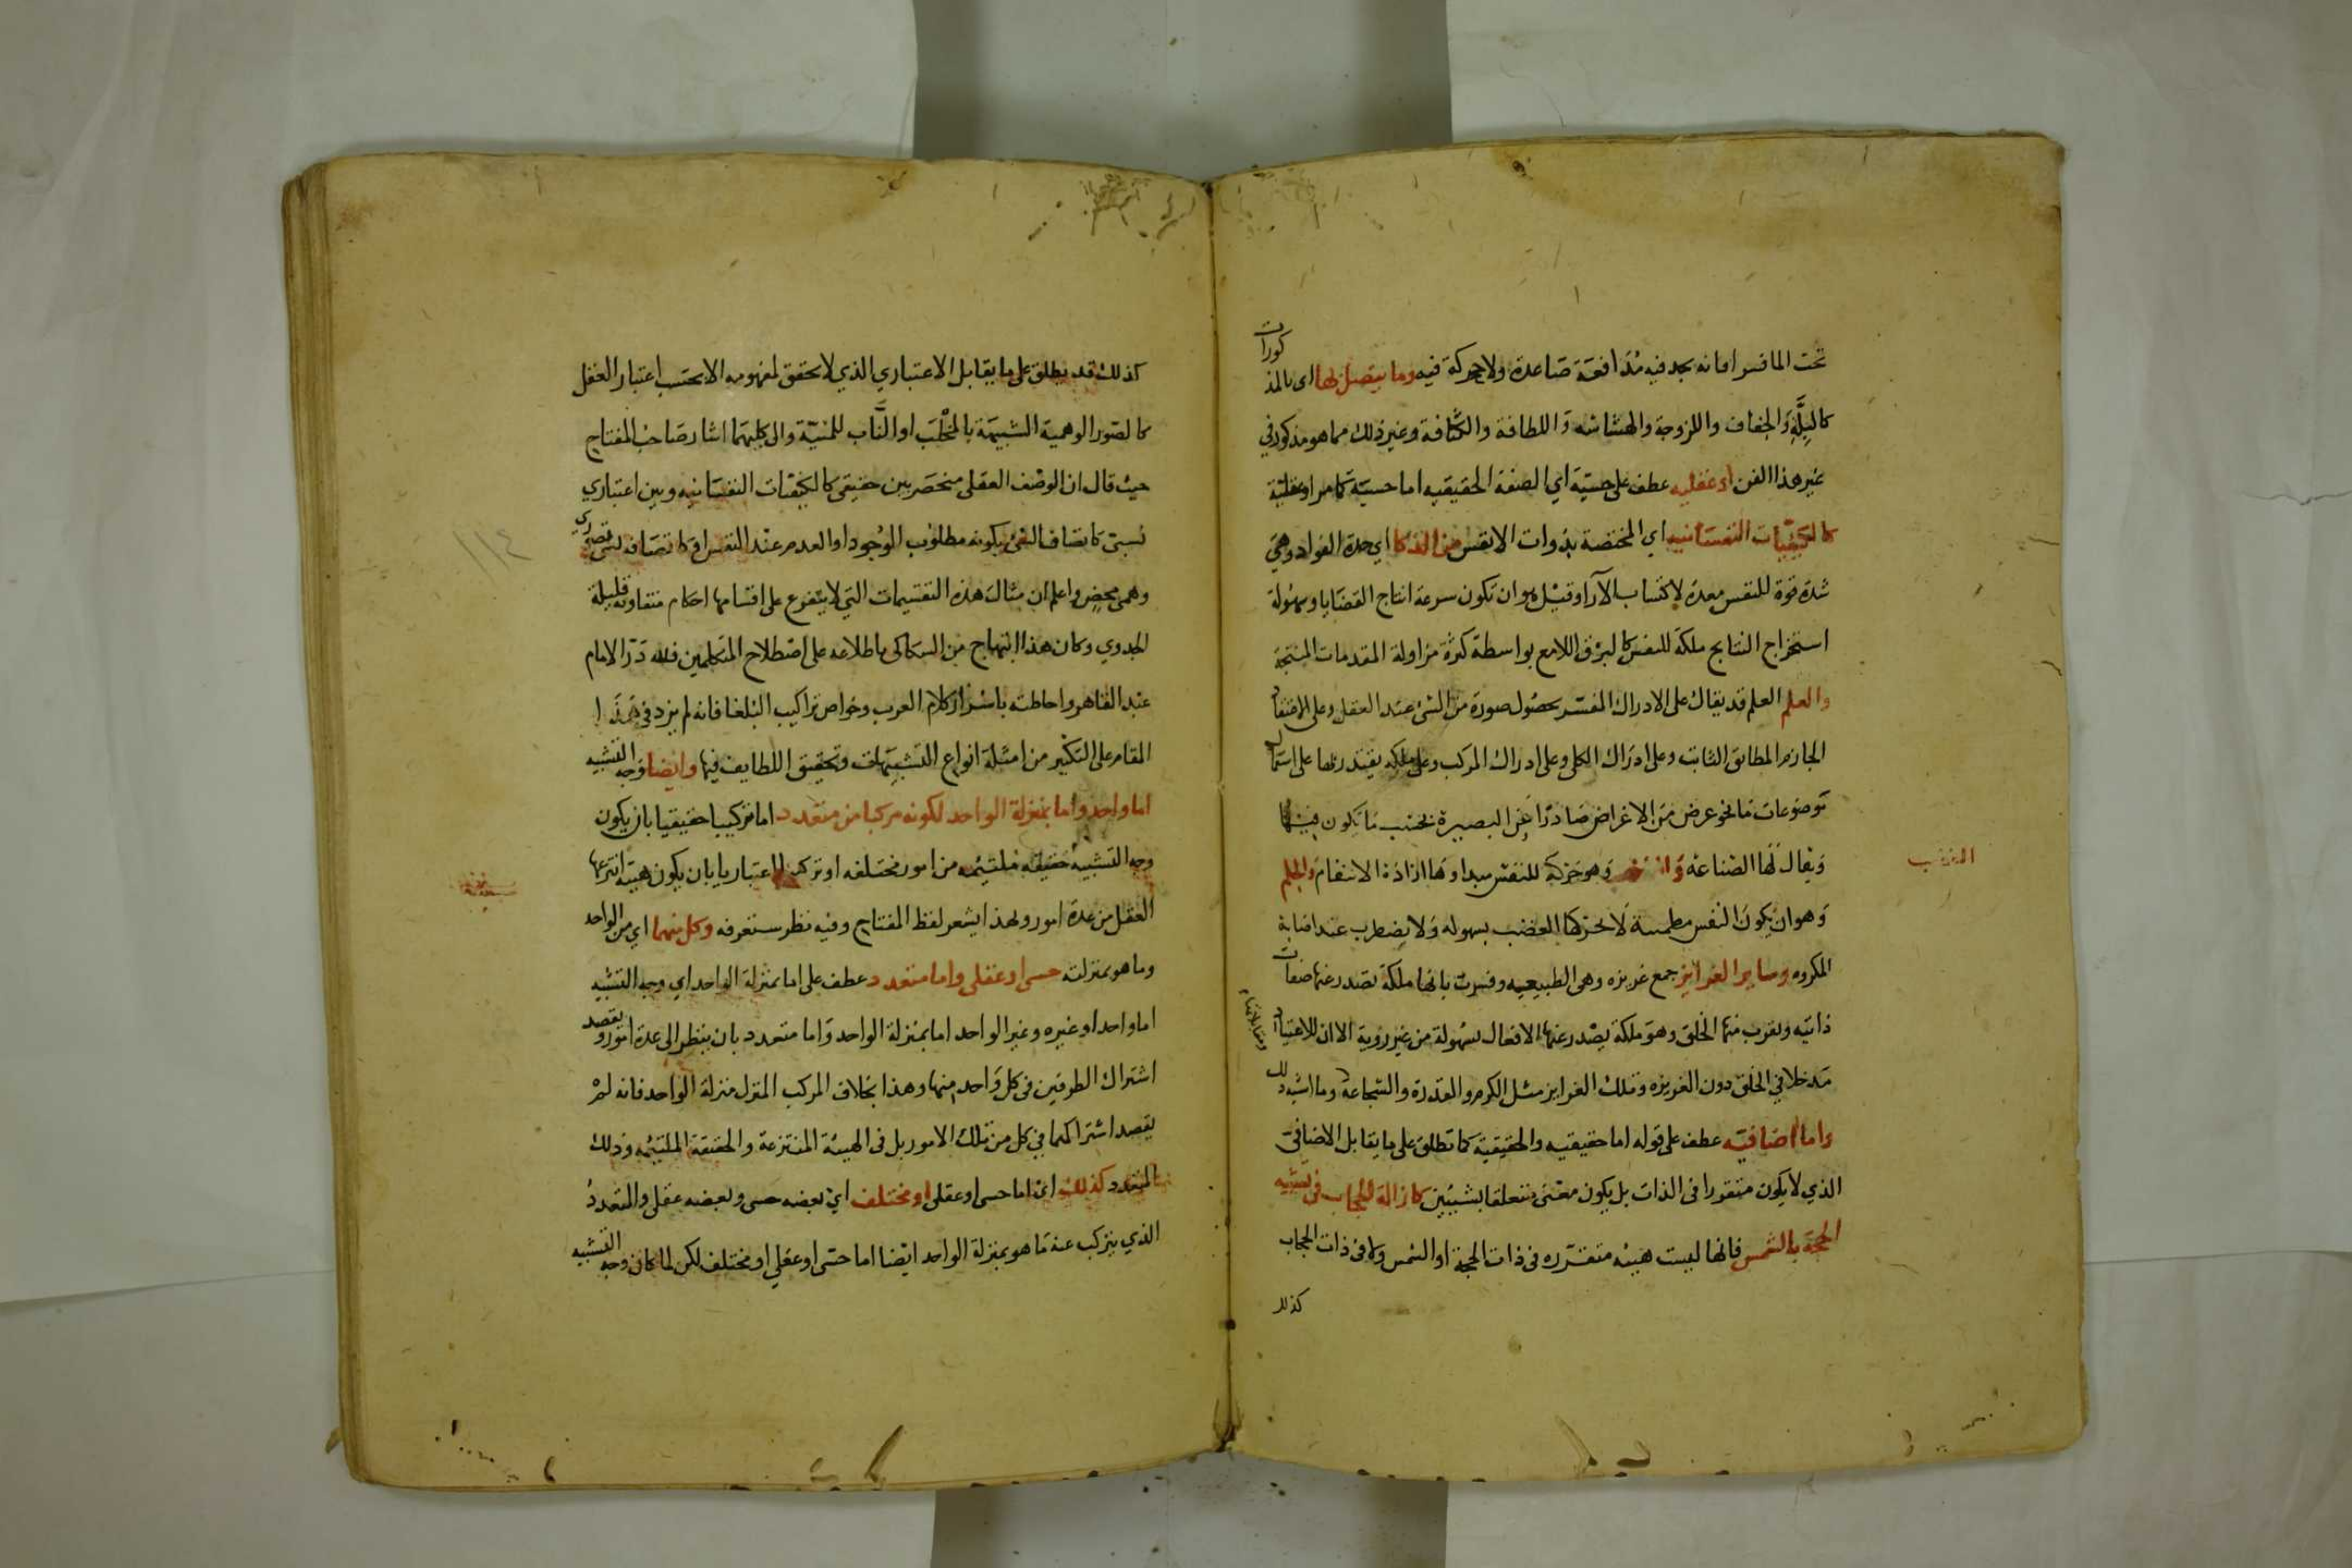 تحت الما قسرا فانه يجد فيه مدافعة صاعدة ولا حركة فيه وما يتصل بها اي بالمذكورات
كالبلة والجفاف واللزوجة والهشاشه واللطافة والكثافة وغير ذلك مما هو مذكور في
غير هذا الفن او عقليه عطف على حسية اي الصفة الحقيقيه اما حسية كما مر او عقلية
كالكيفيات النفسانيه اي المختصة بذوات الانفس من الذكا اي حدة الفواد وهي
شدة قوة للنفس معدة لاكتساب الآرا وقيل هو ان تكون سرعة انتاج القضايا وسهولة
استخراج النتايج ملكة للنفس كالبرق اللامع بواسطة كثرة مزاولة المقدمات المنتجة
والعلم العلم قد يقال على الادراك المفسر بحصول صورة من الشئ عند العقل وعلى الاعتقاد
الجازم المطابق الثابت وعلى ادراك الكلي وعلى ادراك المركب وعلى ملكه يقتدر بها على استعمال
موضوعات ما نحو غرض من الاغراض صادرا عن البصيرة بحسب ما يكون فيها
ويقال لها الصناعه وهو حركة للنفس مبداوها ارادة الانتقام والحلم
الغضب
وهو ان يكون النفس مطمئنة لا يحركها الغضب بسهوله ولا يضطرب عند اصابة
المكروه وساير الغرايز جمع غريزه وهي الطبيعيه وفسرت بانها ملكة تصدر عنها صفات
ذاتيه ويقرب منها الخلق وهو ملكة يصدر عنها الافعال بسهولة من غير روية الا ان للاعتياد
مدخلا في الخلق دون الغريزه وتلك الغرايز مثل الكرم والقدرة والشجاعة وما اشبه ذلك
واما اضافيه عطف على قوله اما حقيقيه والحقيقية كما تطلق على ما يقابل الاضافي
الذي لا يكون متقررا في الذات بل يكون معنى متعلقا بشيئين كازالة الحجاب في تشبيه
الحجة بالشمس فانها ليست هيئه متقرره في ذات الحجة او الشمس ولا في ذات الحجاب
كذلك
كذلك قد يطلق على ما يقابل الاعتباري الذي لا تحقق لمفهومه الا بحسب اعتبار العقل
كالصور الوهمية الشبيهة بالمخلب او الناب للمنية والى كليهما اشار صاحب المفتاح
حيث قال ان الوصف العقلي منحصر بين حقيقي كالكيفيات النفسانيه وبين اعتباري
نسبي كاتصاف الشئ بكونه مطلوب الوجود او العدم عند النفس او كاتصافه بشئ تصوري
١١٤
وهمي محض واعلم ان مثال هذه التقسيمات التي لا يتفرع على اقسامها احكام متفاوته قليلة
الجدوي وكان هذا ابتهاج من السكاكي باطلاعه على اصطلاح المتكلمين فلله در الامام
عبد القاهر واحاطته باسرار كلام العرب وخواص تراكيب البلغا فانه لم يزد في هذا
المقام على التكثير من امثلة انواع التشبيهات وتحقيق اللطايف فيها وايضا وجه التشبيه
اما واحد واما بمنزلة الواحد لكونه مركبا من متعدد اما تركيبا حقيقيا بان يكون
وجه التشبيه حقيقه ملتئمه من امور مختلفه او تركيبا اعتباريا بان يكون هيئه انتزعها
العقل من عدة امور ولهذا يشعر لفظ المفتاح وفيه نظر ستعرفه وكل منهما اي من الواحد
وما هو بمنزلته حسي او عقلي واما متعدد عطف على اما بمنزلة الواحد اي وجه التشبيه
اما واحد او غيره وغير الواحد اما بمنزلة الواحد واما متعدد بان ينظر الى عدة امور ويقصد
اشتراك الطرفين في كل واحد منها وهذا بخلاف المركب المنزل منزلة الواحد فانه لم
يقصد اشتراكهما في كل من تلك الامور بل في الهيئة المنتزعة والحقيقة الملتئمه وذلك
المتعدد كذلك اي اما حسي او عقلي او مختلف اي بعضه حسي وبعضه عقلي والمتعدد
الذي يتركب عنه ما هو بمنزلة الواحد ايضا اما حسي او عقلي او مختلف لكن لما كان وجه التشبيه